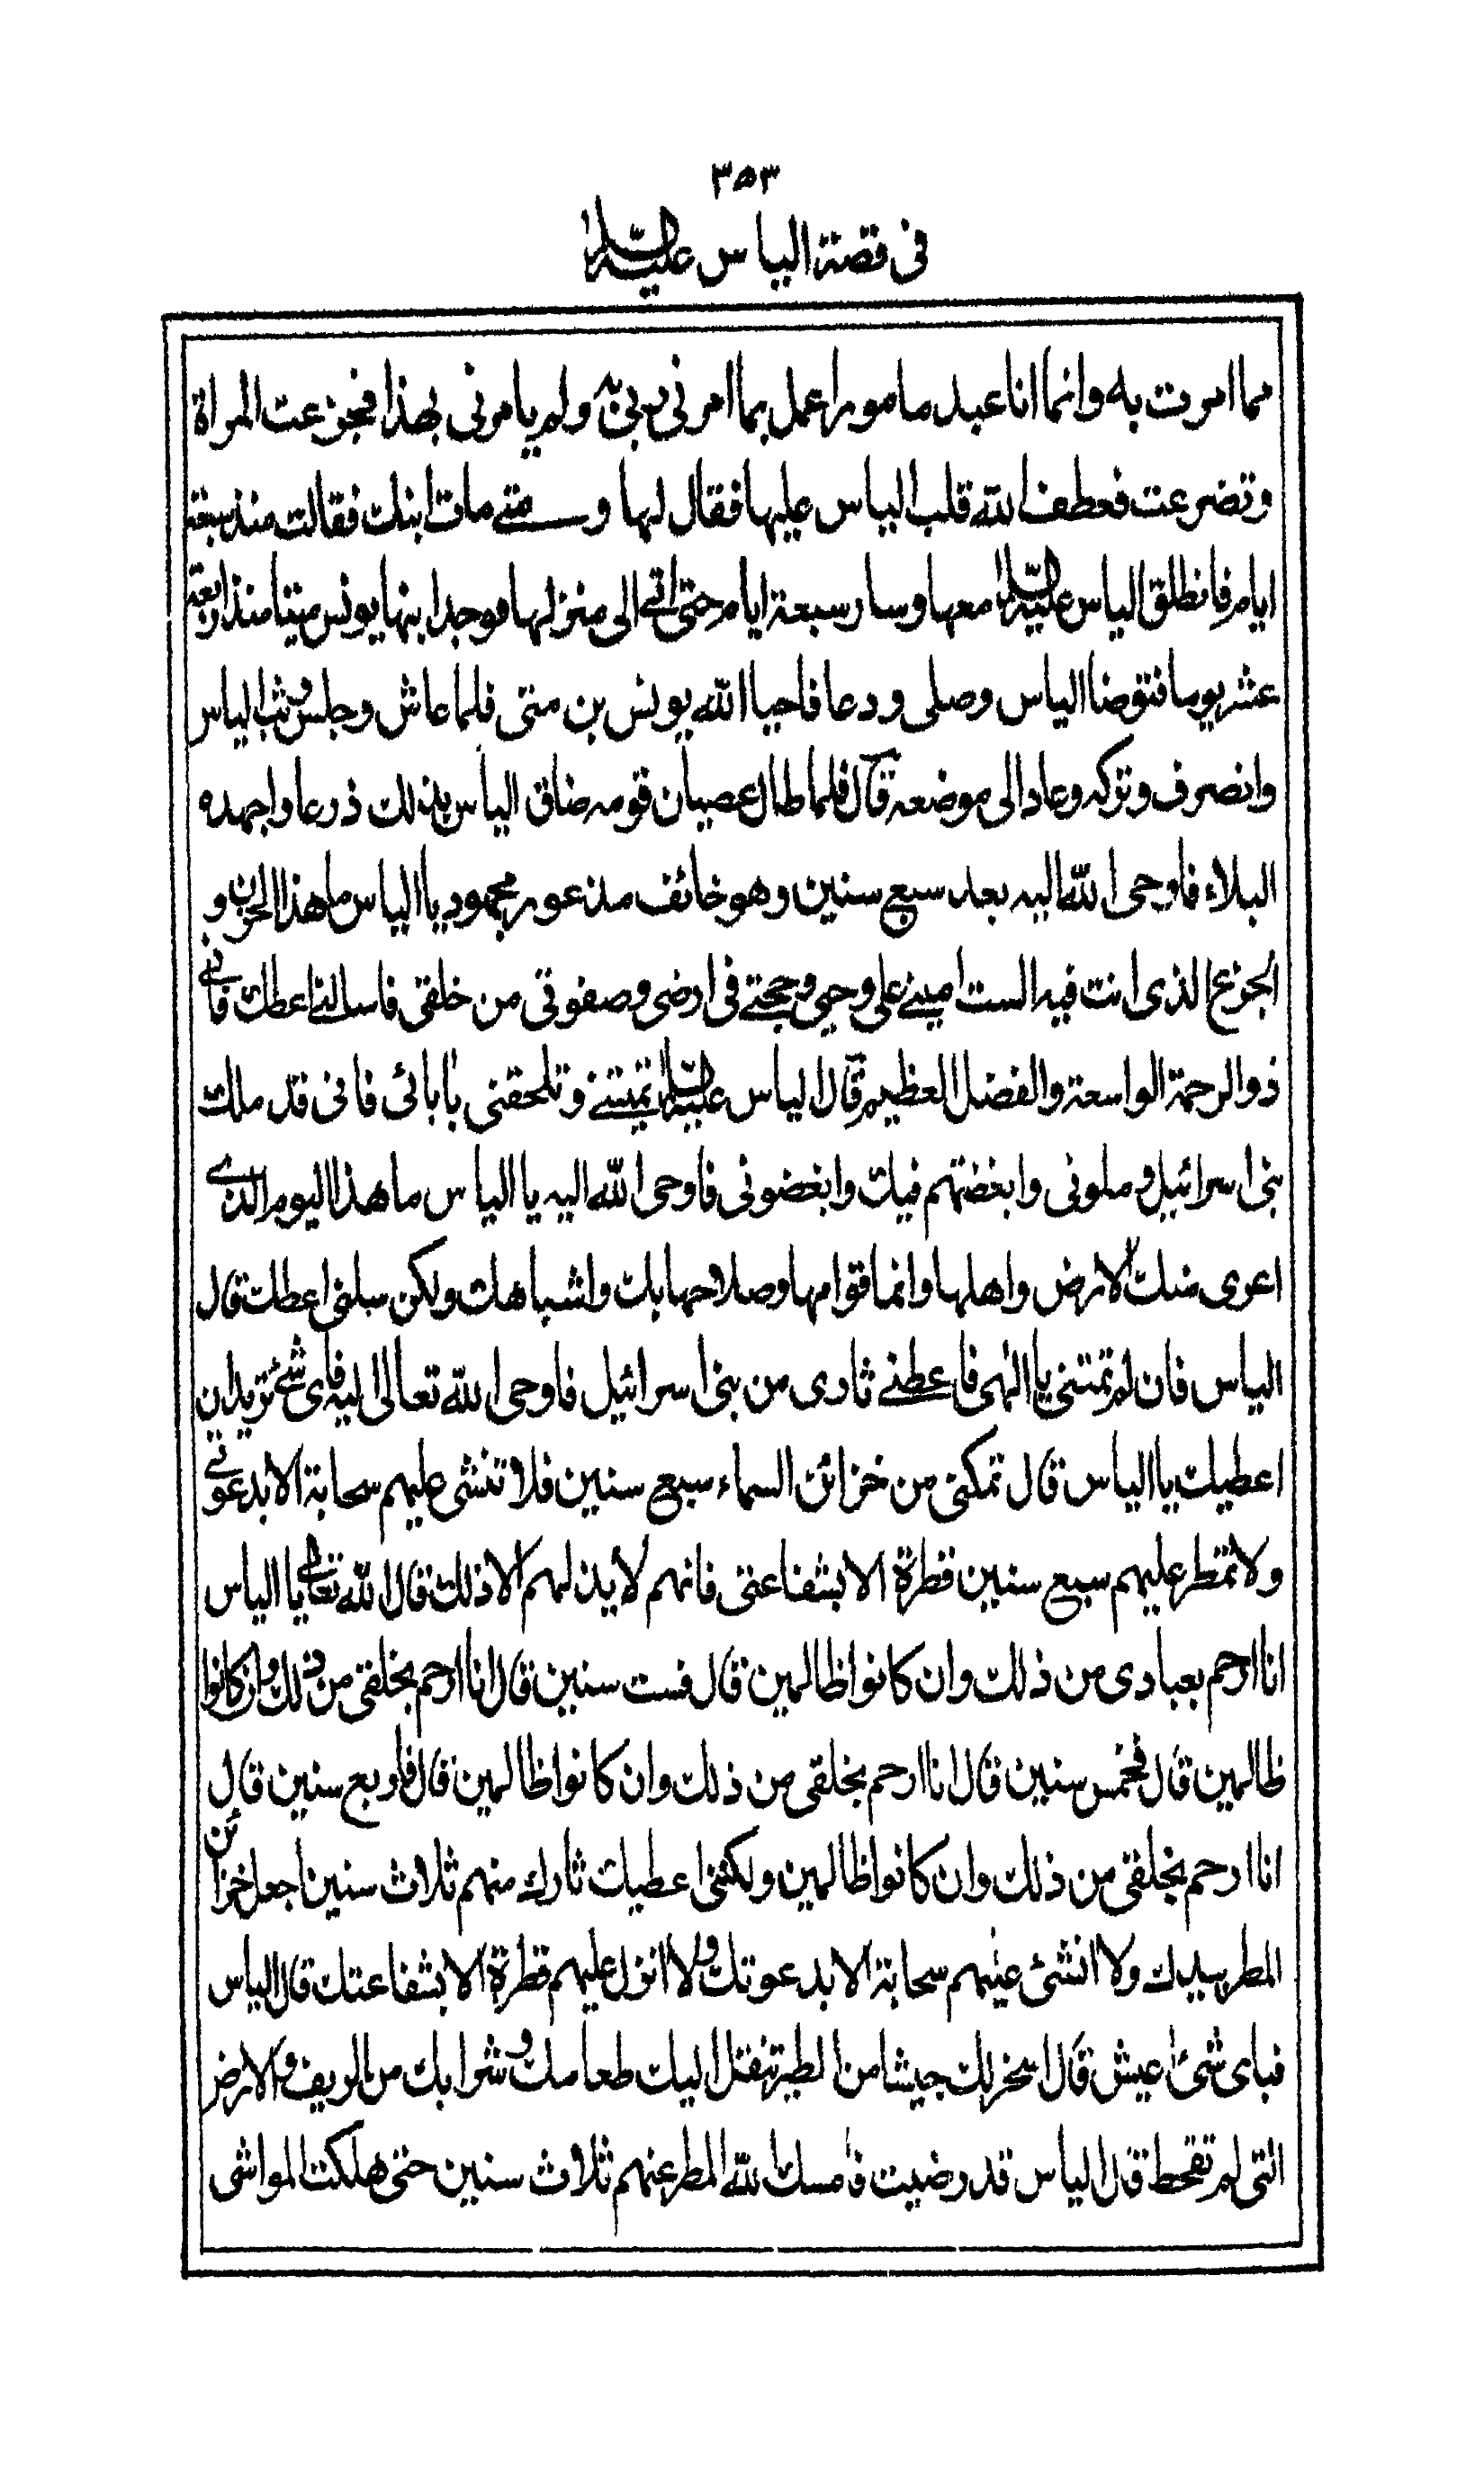 ٣٥٣
فى قصة الياس عليه السلام
مما امرت به وانما انا عبد مامور اعمل بما امرنى ربى به ولم يامرنى بهذا فجزعت المراة
وتضرعت فعطف الله قلب الياس عليها فقال لها ومتى مات ابنك فقالت منذ سبعة
ايام فانطلق الياس عليه السلام معها وسار سبعة ايام حتى اتى الى منزلها فوجد ابنها يونس ميتا منذ اربعة
عشر يوما فتوضا الياس وصلى ودعا فاحيا الله يونس بن متى فلما عاش وجلس وثب الياس
وانصرف وتركه وعاد الى موضعه قال فلما طال عصيان قومه ضاق الياس بذلك ذرعا واجهده
البلاء فاوحى الله اليه بعد سبع سنين وهو خائف مذعور مجهود يا الياس ما هذا الحزن و
الجزع الذى انت فيه الست امينى على وحيى وحجتى فى ارضى وصفوتى من خلقى فاسالنى اعطك فانى
ذو الرحمة الواسعة والفضل العظيم قال الياس عليه السلام تميتنى وتلحقنى بابائى فانى قد مللت
بنى اسرائيل وملونى وابغضتهم فيك وابغضونى فاوحى الله اليه يا الياس ما هذا اليوم الذى
اعرى منك الارض واهلها وانما قوامها وصلاحها بك واشباهك ولكن سلنى اعطك قال
الياس فان لم تمتنى يا الهى فاعطنى ثارى من بنى اسرائيل فاوحى الله تعالى اليه فاى شئ تريد ان
اعطيك يا الياس قال تمكنى من خزائن السماء سبع سنين فلا تنشى عليهم سحابة الا بدعوتى
ولا تمطر عليهم سبع سنين قطرة الا بشفاعتى فانهم لا يذلهم الا ذلك قال الله تعالى يا الياس
انا ارحم بعبادى من ذلك وان كانوا ظالمين قال فست سنين قال انا ارحم بخلقى من ذلك وان كانوا
ظالمين قال فخمس سنين قال انا ارحم بخلقى من ذلك وان كانوا ظالمين قال فاربع سنين قال
انا ارحم بخلقى من ذلك وان كانوا ظالمين ولكننى اعطيك ثارك منهم ثلاث سنين اجعل خزائن
المطر بيدك ولا انشئ عليهم سحابة الا بدعوتك ولا انزل عليهم قطرة الا بشفاعتك قال الياس
فباى شئ اعيش قال اسخر لك جيشا من الطير تنقل اليك طعامك وشرابك من الريف والارض
التى لم تقحط قال الياس قد رضيت فامسك الله المطر عنهم ثلاث سنين حتى هلكت المواشى